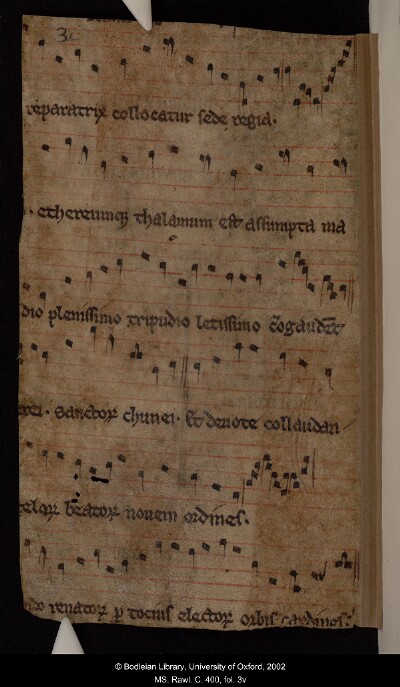 3v
reparatrix collocatur sede regia.
ethereumq thalamum est assumpta ma
dio plenissimo tripudio letissimo cōgaudēt
rei. Sanctoꝝ chunei. Et deuote collaudan
eloꝝ beatoꝝ nouem ordines.
renatoꝝ p totius electoꝝ orbis cardines.
© Bodleian Library, University of Oxford, 2002
MS. Rawl. C. 400, fol. 3v